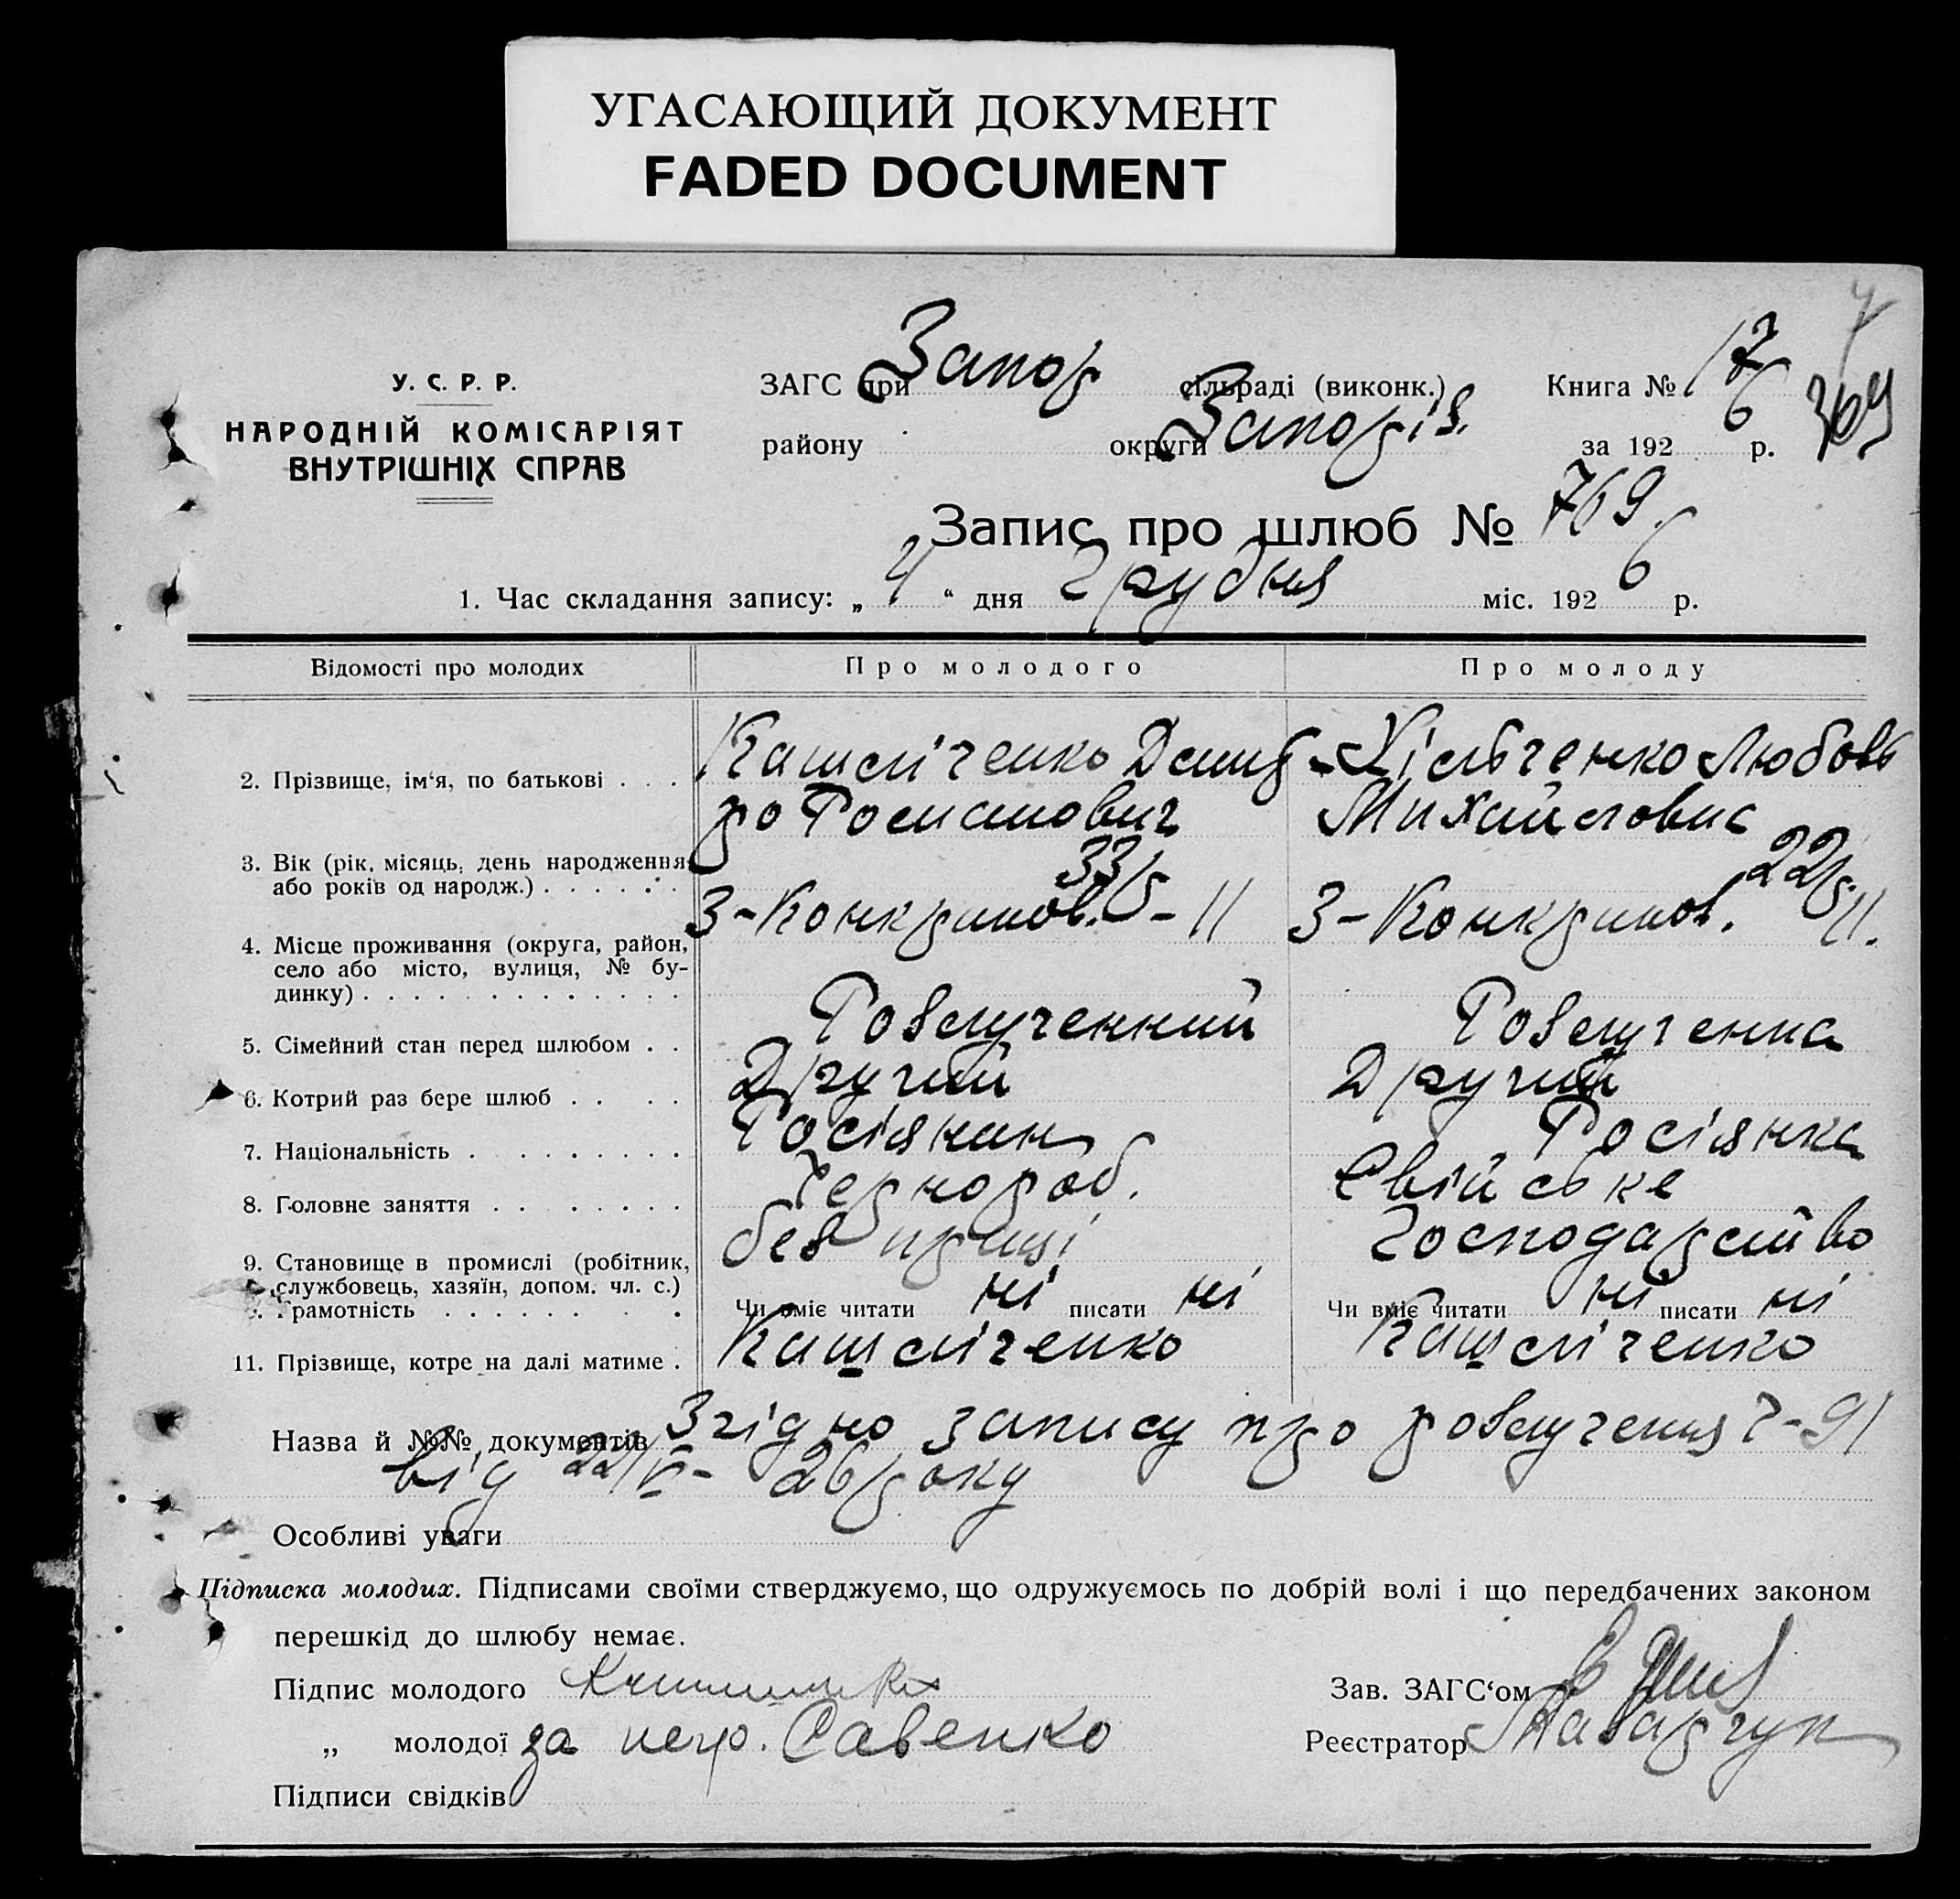 УГАСАЮЩИЙ ДОКУМЕНТ
FADED DOCUMENT
У. С. Р. Р.
НАРОДНІЙ КОМІСАРІЯТ
ВНУТРІШНІХ СПРАВ
ЗАГС при Запор сільраді (виконк.)
району округи Запоріз.
Книга № 17
за 1926 р.
369
Запис про шлюб № 769.
1. Час складання запису: „4“ дня Грудня міс. 1926 р.
Відомості про молодих Про молодого Про молоду
2. Прізвище, ім‘я, по батькові . . . Кашліченко Дмит- Хільченко Любовь
ро Романович Михайловна
3. Вік (рік, місяць, день народження або років од народж.) . . . . . . 33 22
4. Місце проживання (округа, район, село або місто, вулиця, № будинку) . . . . . . . . . . . . . З-Конкринов. 5-11 З-Конкринов. 5 11.
5. Сімейний стан перед шлюбом . . Розлученний Розлученна
6. Котрий раз бере шлюб . . . . Другий Другий
7. Національність . . . . . . . . . Росіянин Росіянка
8. Головне заняття . . . . . . . . Чернороб. Свійське
9. Становище в промислі (робітник, службовець, хазяїн, допом. чл. с.) без праці Господарство
Грамотність . . . . . . . . Чи вміє читати ні писати ні Чи вміє читати ні писати ні
11. Прізвище, котре на далі матиме . Кашліченко Кашліченко
Назва й №№ документів Згідно запису про розлучення Ч-91
від 22/V- 26 року
Особливі уваги
Підписка молодих. Підписами своїми стверджуємо, що одружуємось по добрій волі і що передбачених законом
перешкід до шлюбу немає.
Підпис молодого
Зав. ЗАГС‘ом
„ молодої за негр. Савенко
Реєстратор
Підписи свідків